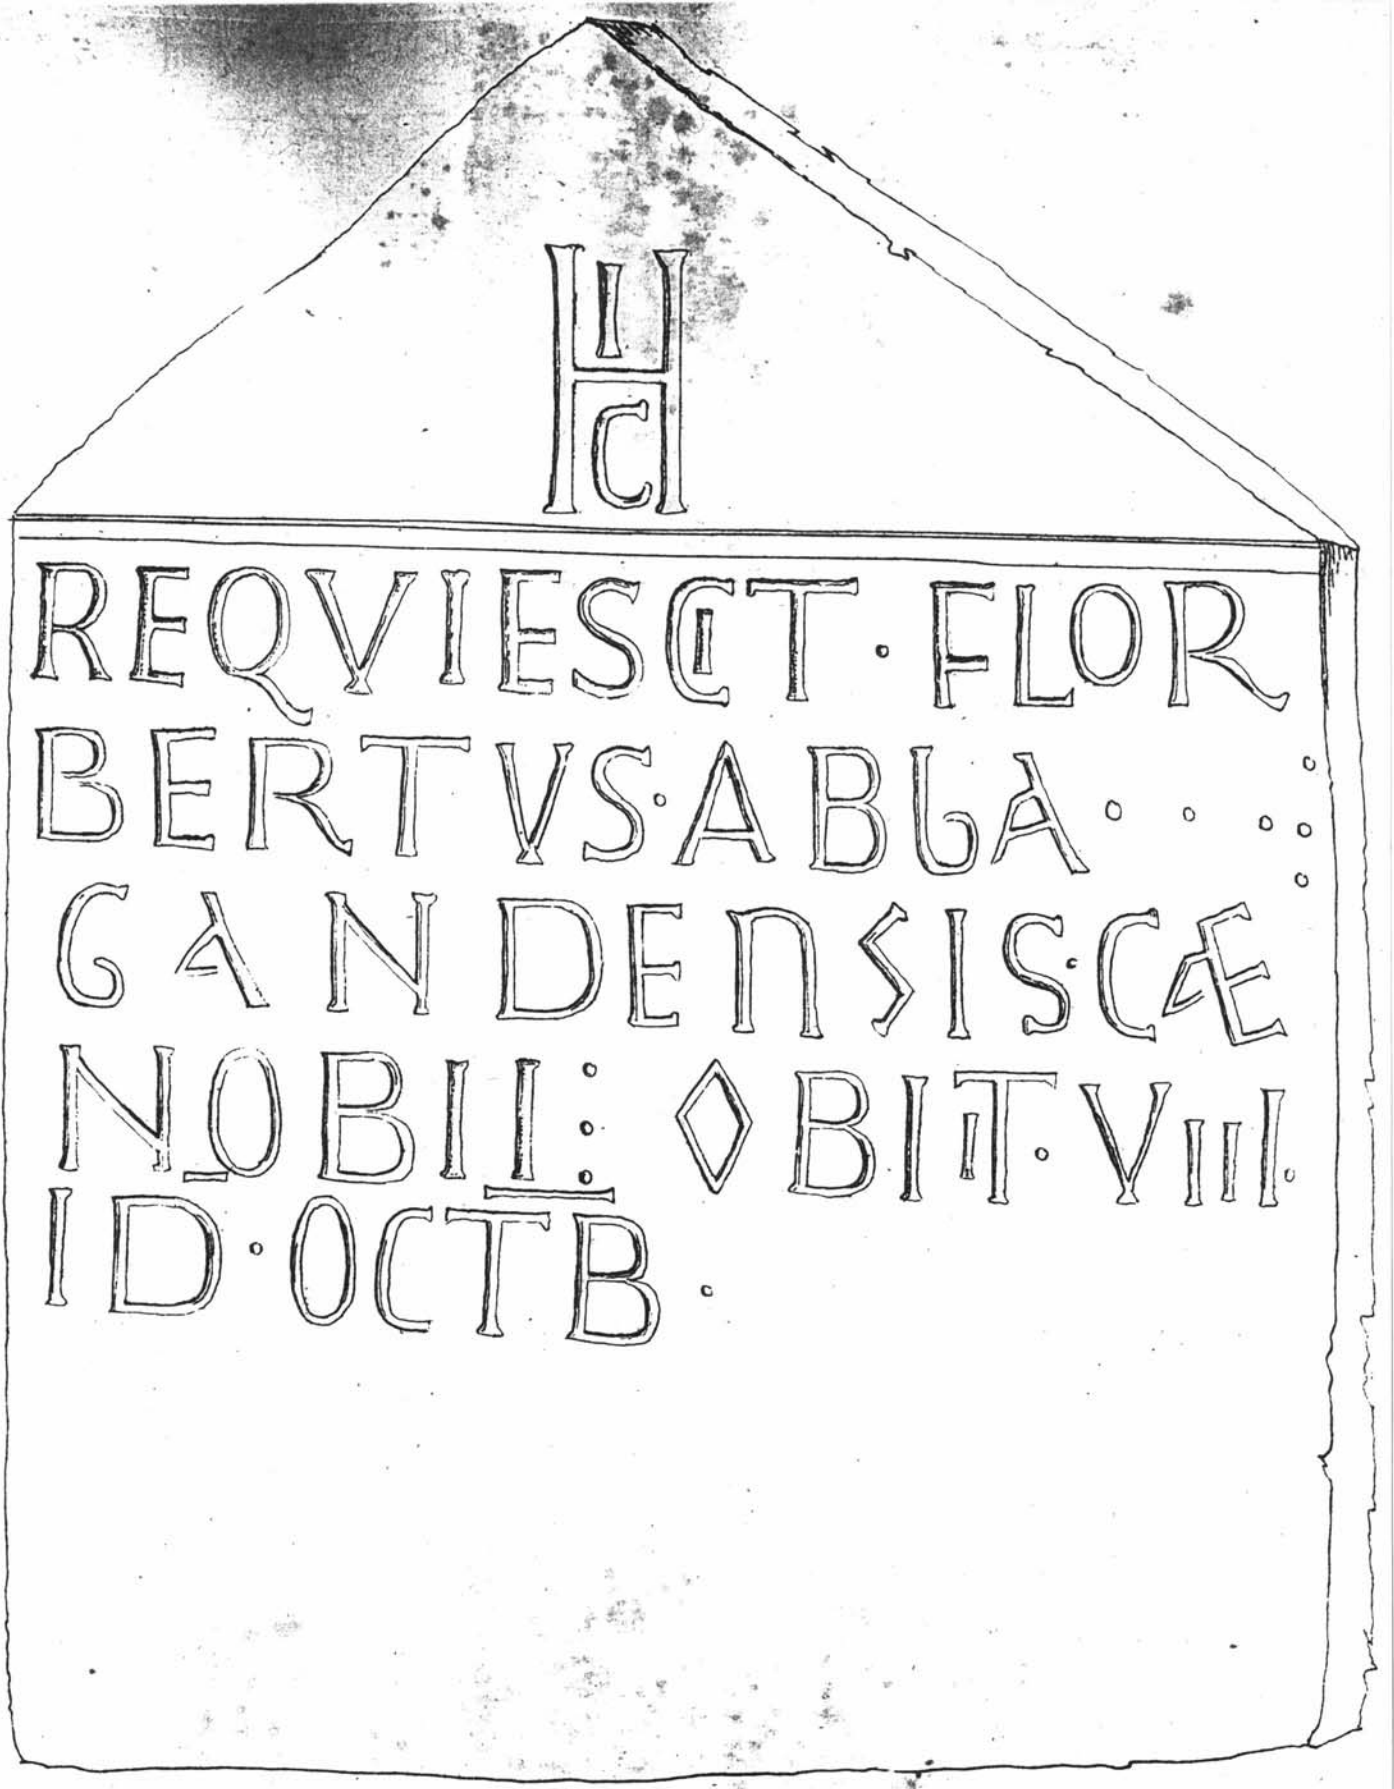 HIC
REQVIESCIT · FLOR
BERTVS · ABbA · · · :·
GANDEnSIS · CÆ
NOBII : OBIIT · VIII ·
ID · OCTB ·